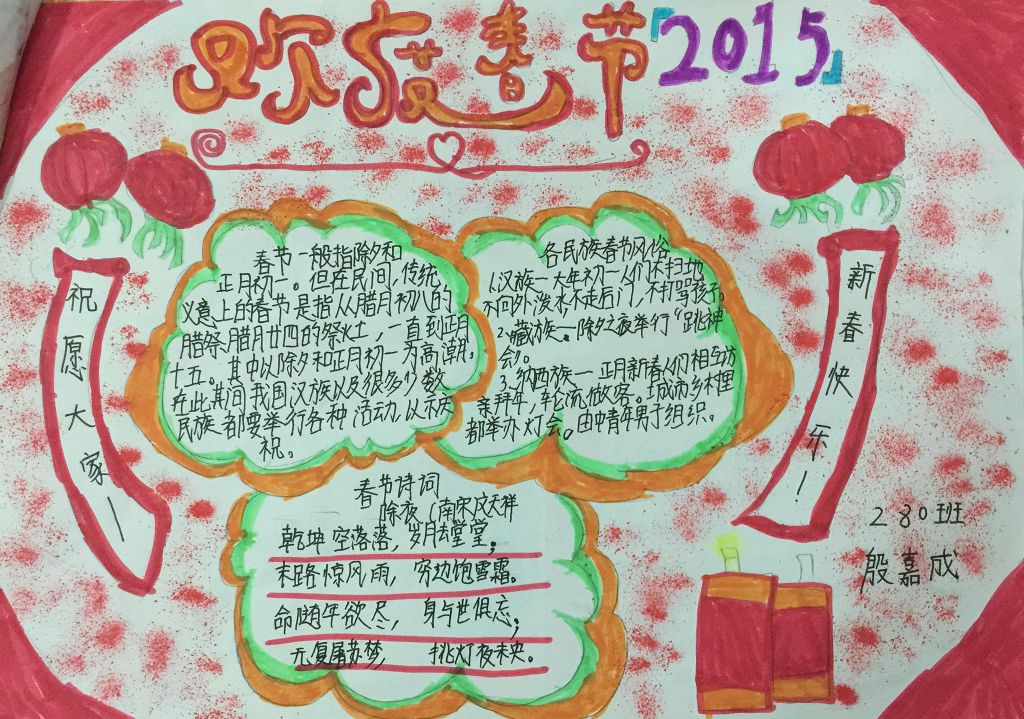 欢度春节「2015」
祝愿大家一
新春快乐！
春节一般指除夕和
正月初一。但在民间，传统
义意上的春节是指从腊月初八的
腊祭腊月廿四的祭灶，一直到正月
十五。其中以除夕和正月初一为高潮。
在此其间我国汉族以及很多少数
民族都要举行各种活动以示庆
祝。
各民族春节风俗
1、汉族一大年初一人们不扫地
不向外泼水不走后门，不打骂孩子。
2、藏族一除夕之夜举行“跳神
会》。
3、纳西族一正月新春人们相互访
亲拜年，轮流做客。城市乡村里
都举办灯会。由中青年男子组织。
春节诗词
除夜（南宋）文天祥
乾坤空落落，岁月去堂堂；
末路惊风雨，穷边饱雪霜。
命随年欲尽，身与世俱忘；
无复屠苏梦，挑灯夜未央。
280班
殷嘉成